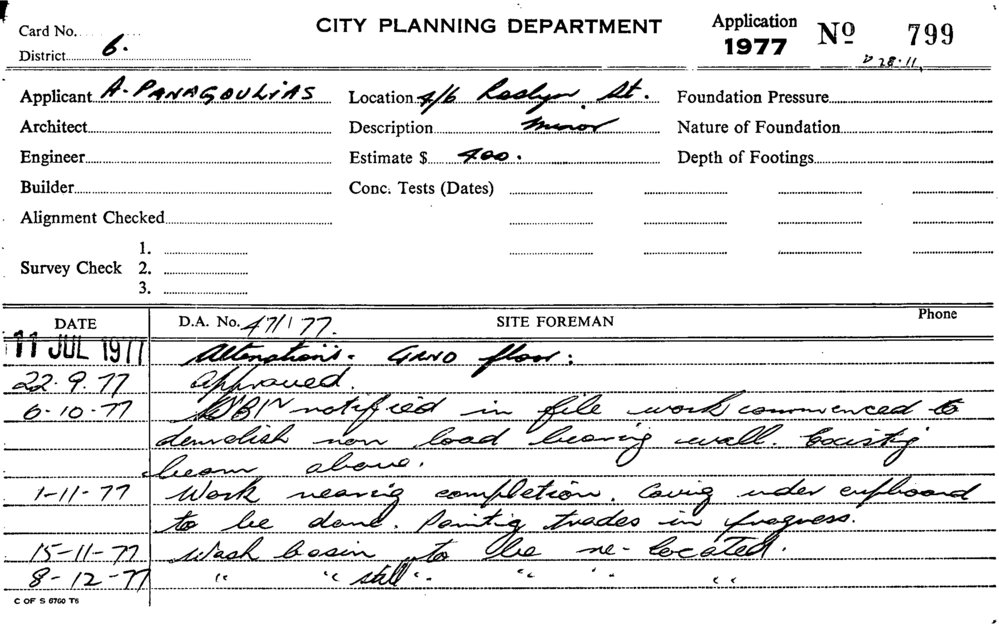 Card No.
CITY PLANNING DEPARTMENT
Application 1977 Nº 799
District 6.
D 28.11.
Applicant A. PANAGOULIAS Location 4/6 Roslyn St. Foundation Pressure
Architect Description minor Nature of Foundation
Engineer Estimate $ 400. Depth of Footings
Builder Conc. Tests (Dates)
Alignment Checked
Survey Check 1.
2.
3.
DATE D.A. No. 47/77. SITE FOREMAN Phone
11 JUL 1977 Alterations - GRND floor:
22.9.77 Approved.
6-10-77 notified in file work commenced to
demolish non load bearing wall. Existig
beam above.
1-11-77 Work nearig completion. Covig under cupboard
to be done. Paintig trades in progress.
15-11-77 Wash basin to be re-located.
8-12-77 " " still " " " "
C OF S 6760 T6